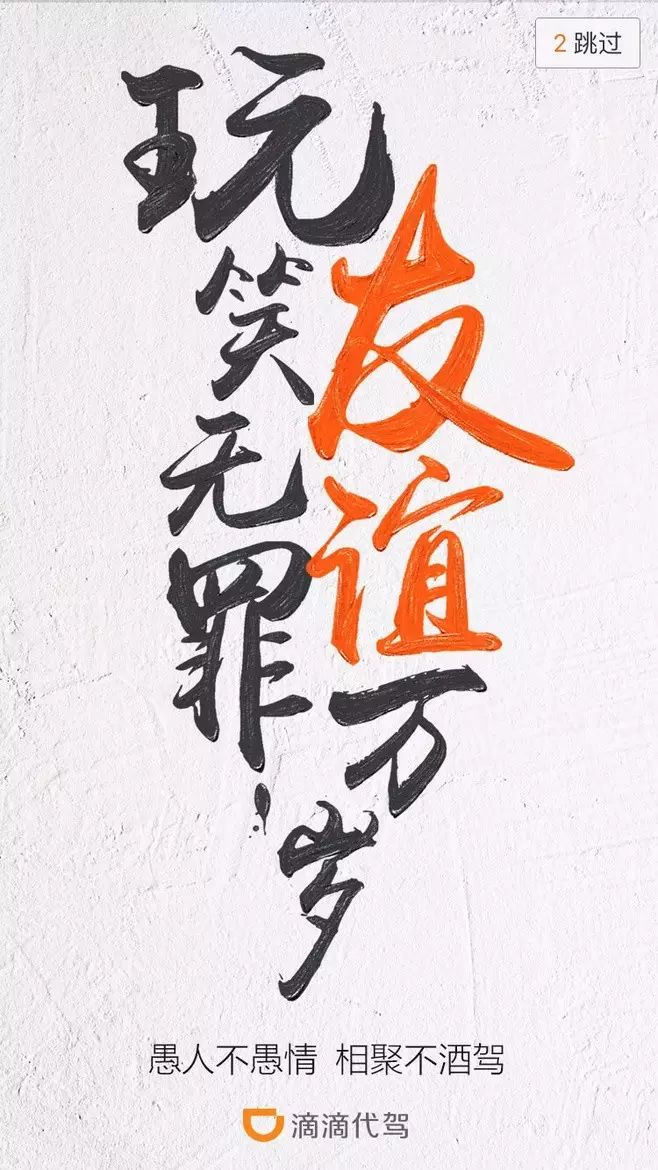 2 跳过
玩笑无罪！
友谊万岁
愚人不愚情 相聚不酒驾
滴滴代驾